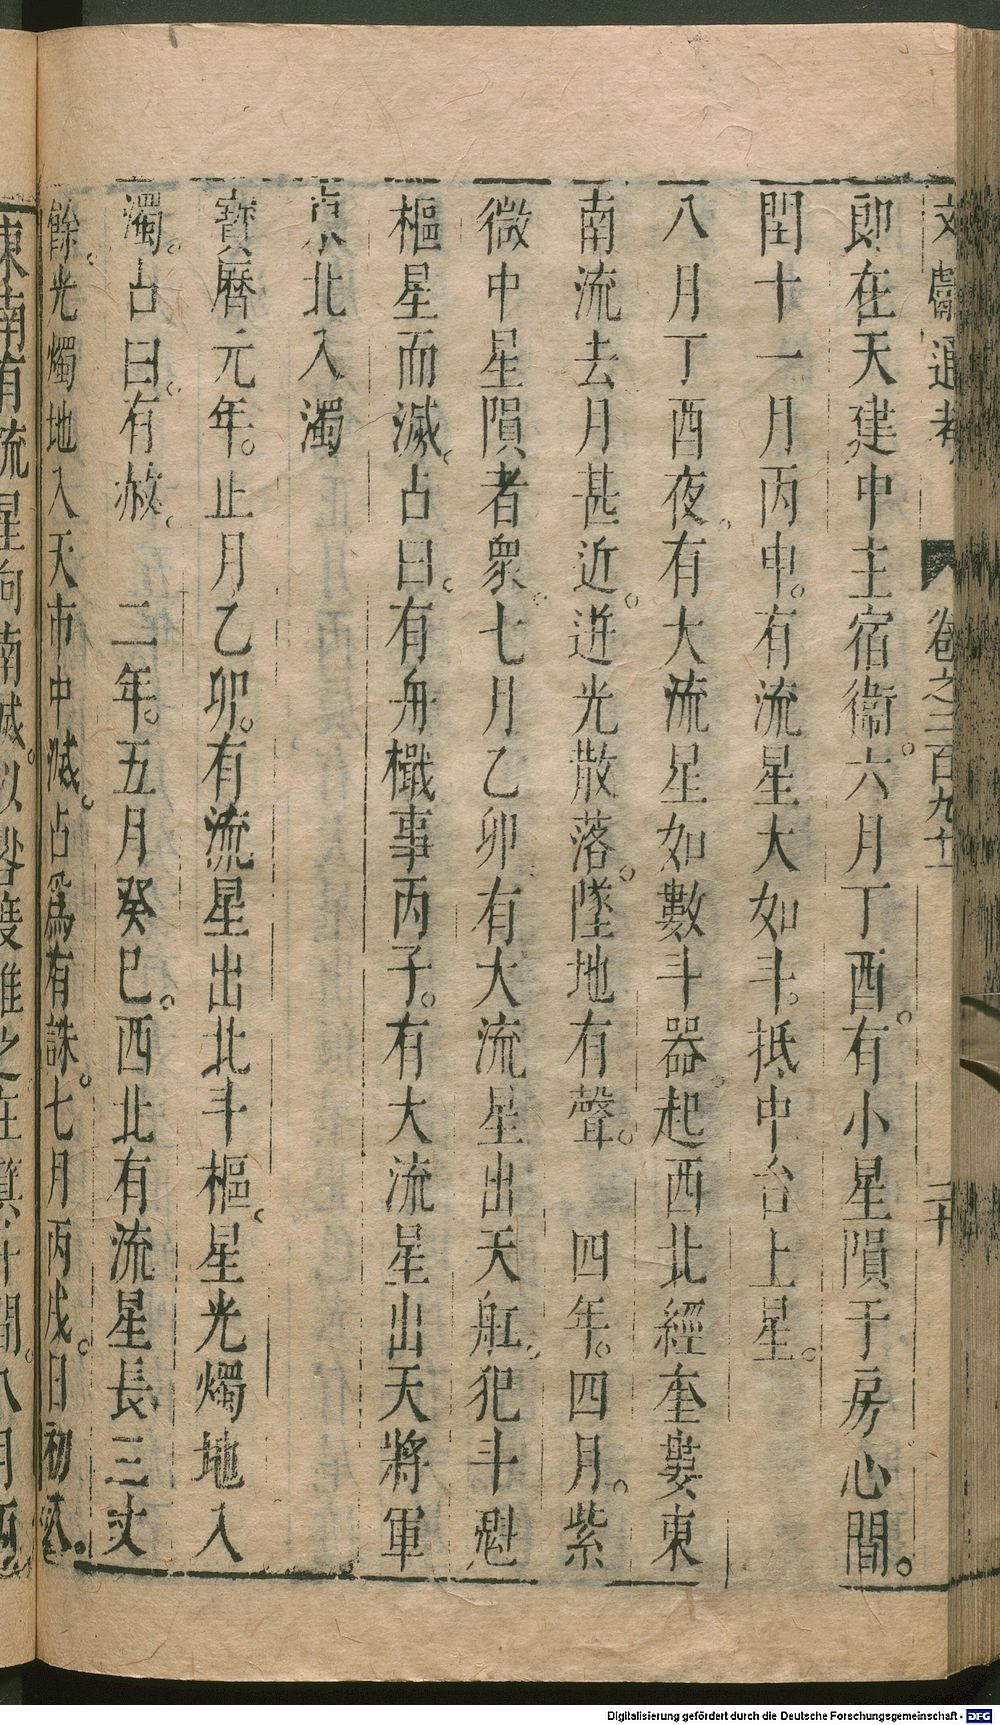 文獻通考 卷之二百九十一 二十
郎在天建中主宿衞。六月丁酉。有小星隕于房心間。
閏十一月丙申。有流星大如斗。抵中台上星。
八月丁酉夜。有大流星如數斗器。起西北經奎婁東
南流去月甚近。迸光散落。墜地有聲。 四年。四月。紫
微中星隕者衆。七月乙卯有大流星出天舡。犯斗魁
樞星而滅。占曰。有舟檝事丙子。有大流星出天將軍
東北入濁
寶曆元年。止月乙卯。有流星出北斗樞。星光燭地入
濁。占曰。有赦。 二年。五月癸巳。西北有流星長三丈
餘。光燭地入天市中滅。占爲有誅。七月丙戌。日初入。
東南有流星向南滅。以晷度推之在箕斗間。八月丙
Digitalisierung gefördert durch die Deutsche Forschungsgemeinschaft - DFG